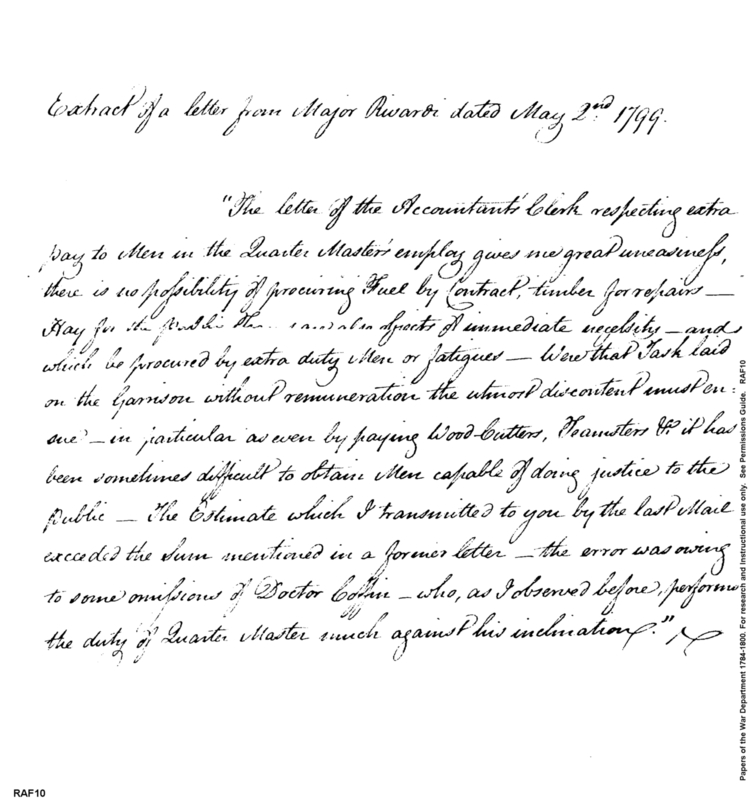 Extract of a letter from Major Rivardi dated May 2nd 1799.
"The letter of the Accountant's Clerk respecting extra
pay to Men in the Quarter Master's employ gives me great uneasiness,
there is no possibility of procuring Fuel by Contract, timber for repairs —
Hay for the also objects of immediate necessity — and
which be procured by extra duty Men or fatigues — Were that Task laid
on the Garrison without remuneration the utmost discontent must en:
sue — in particular as even by paying Wood Cutters, Teamsters &c it has
been sometimes difficult to obtain Men capable of doing justice to the
Public — The Estimate which I transmitted to you by the last Mail
exceeded the Sum mentioned in a former letter — the error was owing
to some omissions of Doctor Coffin — who, as I observed before, performs
the duty of Quarter Master much against his inclination."
RAF10
Papers of the War Department 1784-1800. For research and instructional use only. See Permissions Guide. RAF10